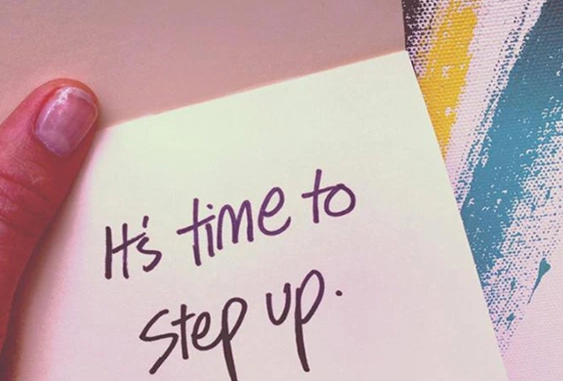 It's time to
step up.